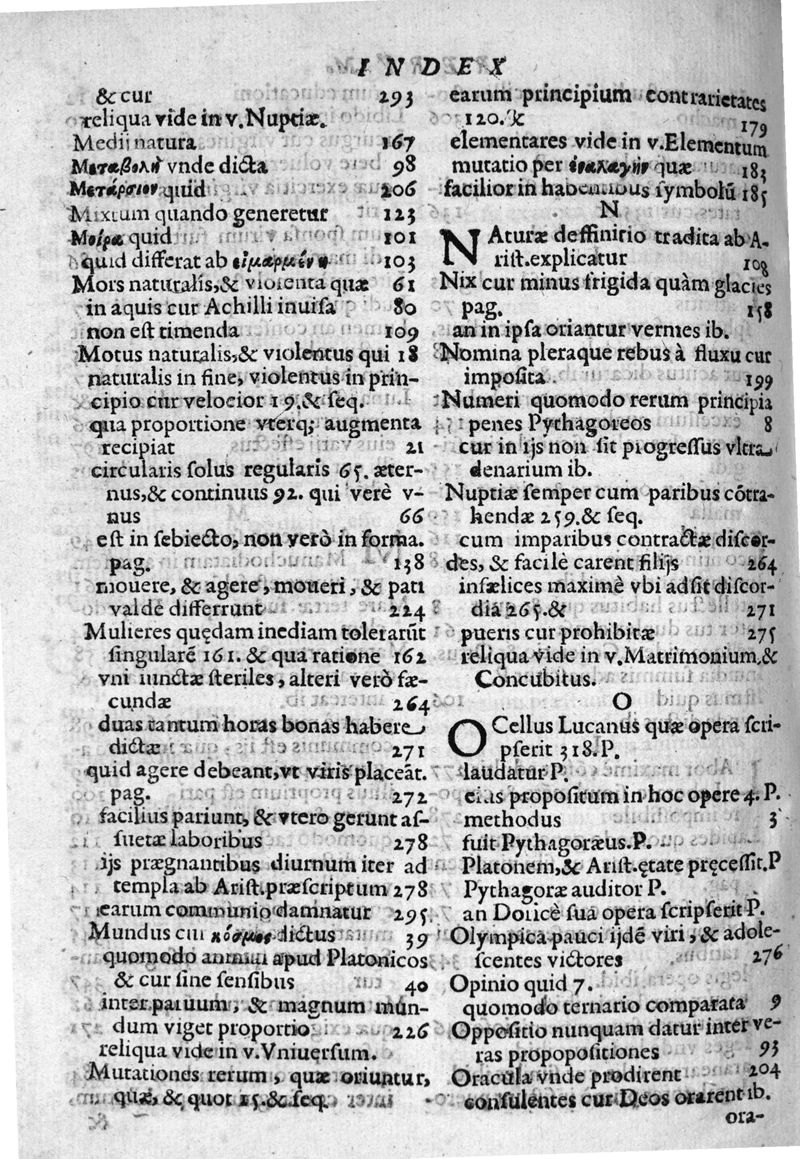 INDEX
& cur 293
reliqua vide in v. Nuptiæ.
Medij natura 167
Μεταβολὴ vnde dicta 98
Μετάρσιον quid 206
Mixtum quando generetur 123
Μοίρα quid 101
quid differat ab εἱμαρμένῃ 103
Mors naturalis, & violenta quæ 61
in aquis cur Achilli inuisa 80
non est timenda 109
Motus naturalis, & violentus qui 18
naturalis in fine, violentus in prin-
cipio cur velocior 19. & seq.
qua proportione vterq; augmenta
recipiat 21
circularis solus regularis 65. æter-
nus, & continuus 92. qui verè v-
nus 66
est in sebiecto, non verò in forma.
pag. 138
mouere, & agere, moueri, & pati
valde differunt 224
Mulieres quędam inediam tolerarũt
singularẽ 161. & qua ratione 162
vni iunctæ steriles, alteri verò fæ-
cundæ 264
duas tantum horas bonas habere
dictæ 271
quid agere debeant, vt viris placeãt.
pag. 272
facilius pariunt, & vtero gerunt as-
suetæ laboribus 278
ijs prægnantibus diurnum iter ad
templa ab Arist. præscriptum 278
earum communio damnatur 295.
Mundus cur κόσμος dictus 39
quomodo animai apud Platonicos
& cur sine sensibus 40
inter paruum, & magnum mun-
dum viget proportio 226
reliqua vide in v. Vniuersum.
Mutationes rerum, quæ oriuntur,
quæ, & quot 15. & seq.
earum principium contrarietates
120. & 179
elementares vide in v. Elementum
mutatio per ἐναλαγὴν quæ 183
facilior in habentibus symbolũ 185
N
NAturæ deffinitio tradita ab A-
rist. explicatur 108
Nix cur minus frigida quàm glacies
pag. 158
an in ipsa oriantur vermes ib.
Nomina pleraque rebus à fluxu cur
imposita 199
Numeri quomodo rerum principia
penes Pythagoreos 8
cur in ijs non sit progressus vltra
denarium ib.
Nuptiæ semper cum paribus cõtra-
hendæ 259. & seq.
cum imparibus contractæ discor-
des, & facilè carent filijs 264
infælices maximè vbi adsit discor-
dia 265. & 271
pueris cur prohibitæ 275
reliqua vide in v. Matrimonium, &
Concubitus.
O
OCellus Lucanus quæ opera scri-
pserit 318. P.
laudatur P.
eius propositum in hoc opere 4. P.
methodus 3
fuit Pythagoræus. P.
Platonem, & Arist. ętate pręcessit. P
Pythagoræ auditor P.
an Doricè sua opera scripserit P.
Olympica pauci ijdẽ viri, & adole-
scentes victores 276
Opinio quid 7.
quomodo ternario comparata 9
Oppositio nunquam datur inter ve-
ras propopositiones 93
Oracula vnde prodirent 204
consulentes cur Deos orarent ib.
ora-